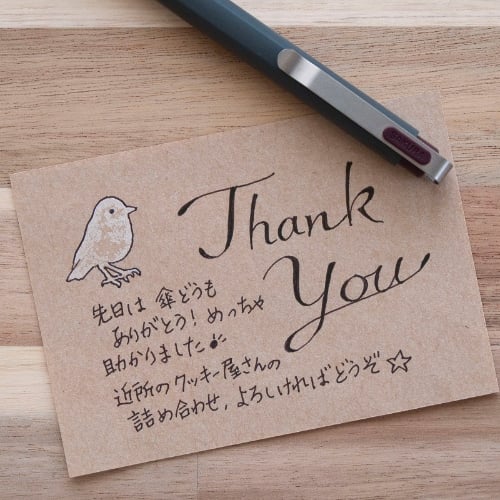 Thank
You
先日は 傘どうも
ありがとう！めっちゃ
助かりました♪
近所のクッキー屋さんの
詰め合わせ、よろしければどうぞ☆